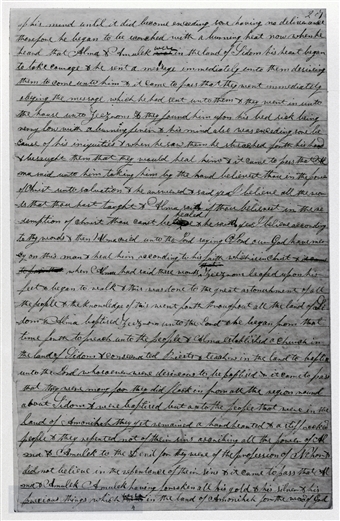 up his mind until it did become exceding sore having no deliverance
therefore he began to be scorched with a burning heat now when he
heard that Alma & Amulek were in the land of Sidom his heart began
to take courage & he sent a message immediately unto them desireing
them to come unto him & it came to pass that they went immediately
obeying the message which he had sent unto them & they went in unto
the house unto Zeezrom & they found him upon his bed sick being
very low with a burning fever & his mind also was exceding sore be
cause of his iniquities & when he saw them he stretched forth his hand
& besought them that they would heal him & it came to pass that Al
ma said unto him taking him by the hand believest thou in the power
of Christ unto salvation & he answered & said yea I believe all the wor
ds that thou hast taught & Alma said if thou believest in the re
demption of Christ thou canst be healed & he said yea I believe according
to thy words & then Alma cried unto the Lord saying O Lord our God have mer
cy on this man & heal him according to his faith which is in Christ
when Alma had said these words Zeezrom leaped upon his
feet & began to walk & this was done to the great astonishment of all
the people & the knowledge of this went forth throughout all the land of Si
dom & Alma baptized Zeezrom unto the Lord & he began from that
time forth to preach unto the people & Alma established a church in
the land of Sidom & consecrated Priests & teachers in the land to baptize
unto the Lord whosoever were desireous to be baptized & it came to pass
that they were many for they did flock in from all the region round
about Sidom & were baptized but as to the people that were in the
land of Amonihah they yet remained a hard hearted & a stiffnecked
people & they repented not of their sins ascribing all the power of Al
ma & Amulek to the Devil for they were of the profession of Nehor &
did not believe in the repentance of their sins & it came to pass that Al
ma & Amulek Amulek having forsaken all his gold & his silver & his
precious things which in the land of Amonihah for the word of God